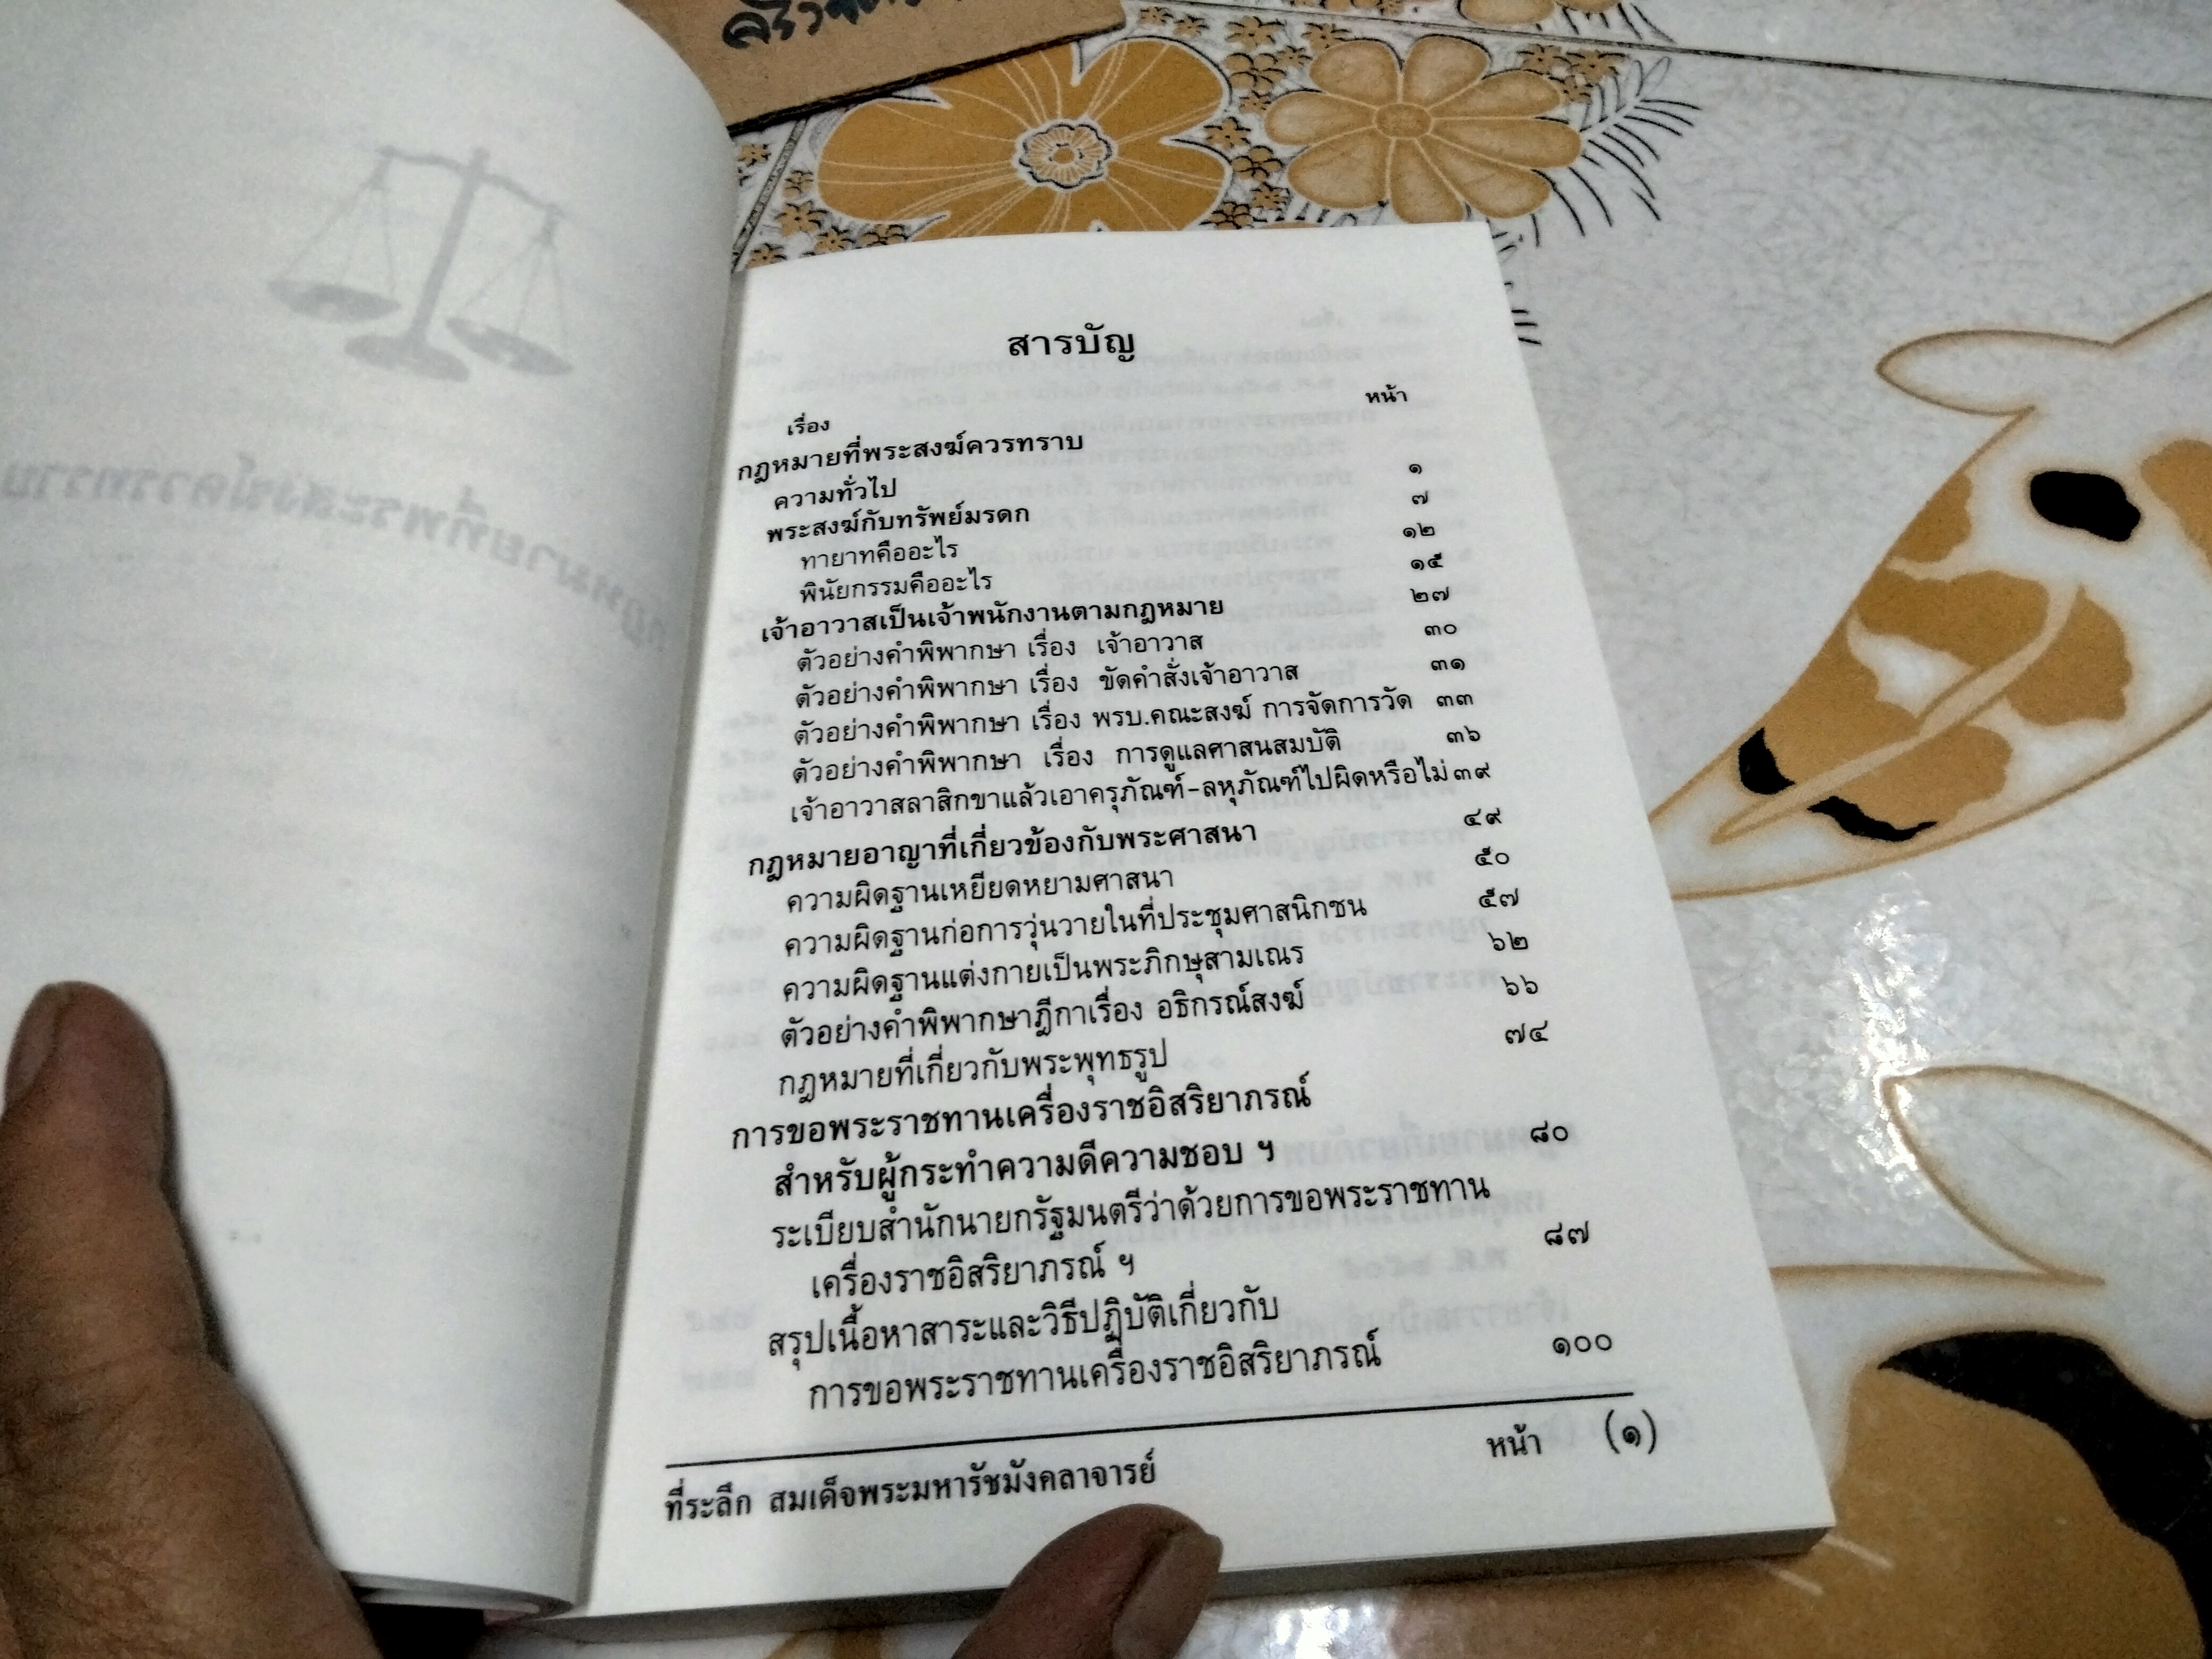 สารบัญ
เรื่อง หน้า
กฎหมายที่พระสงฆ์ควรทราบ
ความทั่วไป ๑
พระสงฆ์กับทรัพย์มรดก ๗
ทายาทคืออะไร ๑๒
พินัยกรรมคืออะไร ๑๕
เจ้าอาวาสเป็นเจ้าพนักงานตามกฎหมาย ๒๗
ตัวอย่างคำพิพากษา เรื่อง เจ้าอาวาส ๓๐
ตัวอย่างคำพิพากษา เรื่อง ขัดคำสั่งเจ้าอาวาส ๓๑
ตัวอย่างคำพิพากษา เรื่อง พรบ.คณะสงฆ์ การจัดการวัด ๓๓
ตัวอย่างคำพิพากษา เรื่อง การดูแลศาสนสมบัติ ๓๖
เจ้าอาวาสลาสิกขาแล้วเอาครุภัณฑ์-ลหุภัณฑ์ไปผิดหรือไม่ ๓๙
กฎหมายอาญาที่เกี่ยวข้องกับพระศาสนา ๔๙
ความผิดฐานเหยียดหยามศาสนา ๕๐
ความผิดฐานก่อการวุ่นวายในที่ประชุมศาสนิกชน ๕๗
ความผิดฐานแต่งกายเป็นพระภิกษุสามเณร ๖๒
ตัวอย่างคำพิพากษาฎีกาเรื่อง อธิกรณ์สงฆ์ ๖๖
กฎหมายที่เกี่ยวกับพระพุทธรูป ๗๔
การขอพระราชทานเครื่องราชอิสริยาภรณ์
สำหรับผู้กระทำความดีความชอบ ฯ ๘๐
ระเบียบสำนักนายกรัฐมนตรีว่าด้วยการขอพระราชทาน
เครื่องราชอิสริยาภรณ์ ฯ ๘๗
สรุปเนื้อหาสาระและวิธีปฏิบัติเกี่ยวกับ
การขอพระราชทานเครื่องราชอิสริยาภรณ์ ๑๐๐
ที่ระลึก สมเด็จพระมหารัชมังคลาจารย์ หน้า (๑)